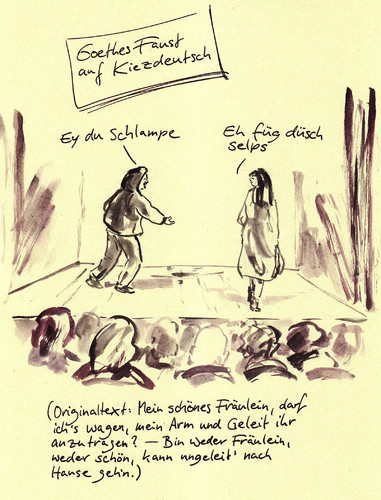 Goethes Faust
auf Kiezdeutsch
Ey du Schlampe
Eh füg düsch
selps
(Originaltext: Mein schönes Fräulein, darf
ich's wagen, mein Arm und Geleit ihr
anzutragen? – Bin weder Fräulein,
weder schön, kann ungeleit' nach
Hause geh'n.)